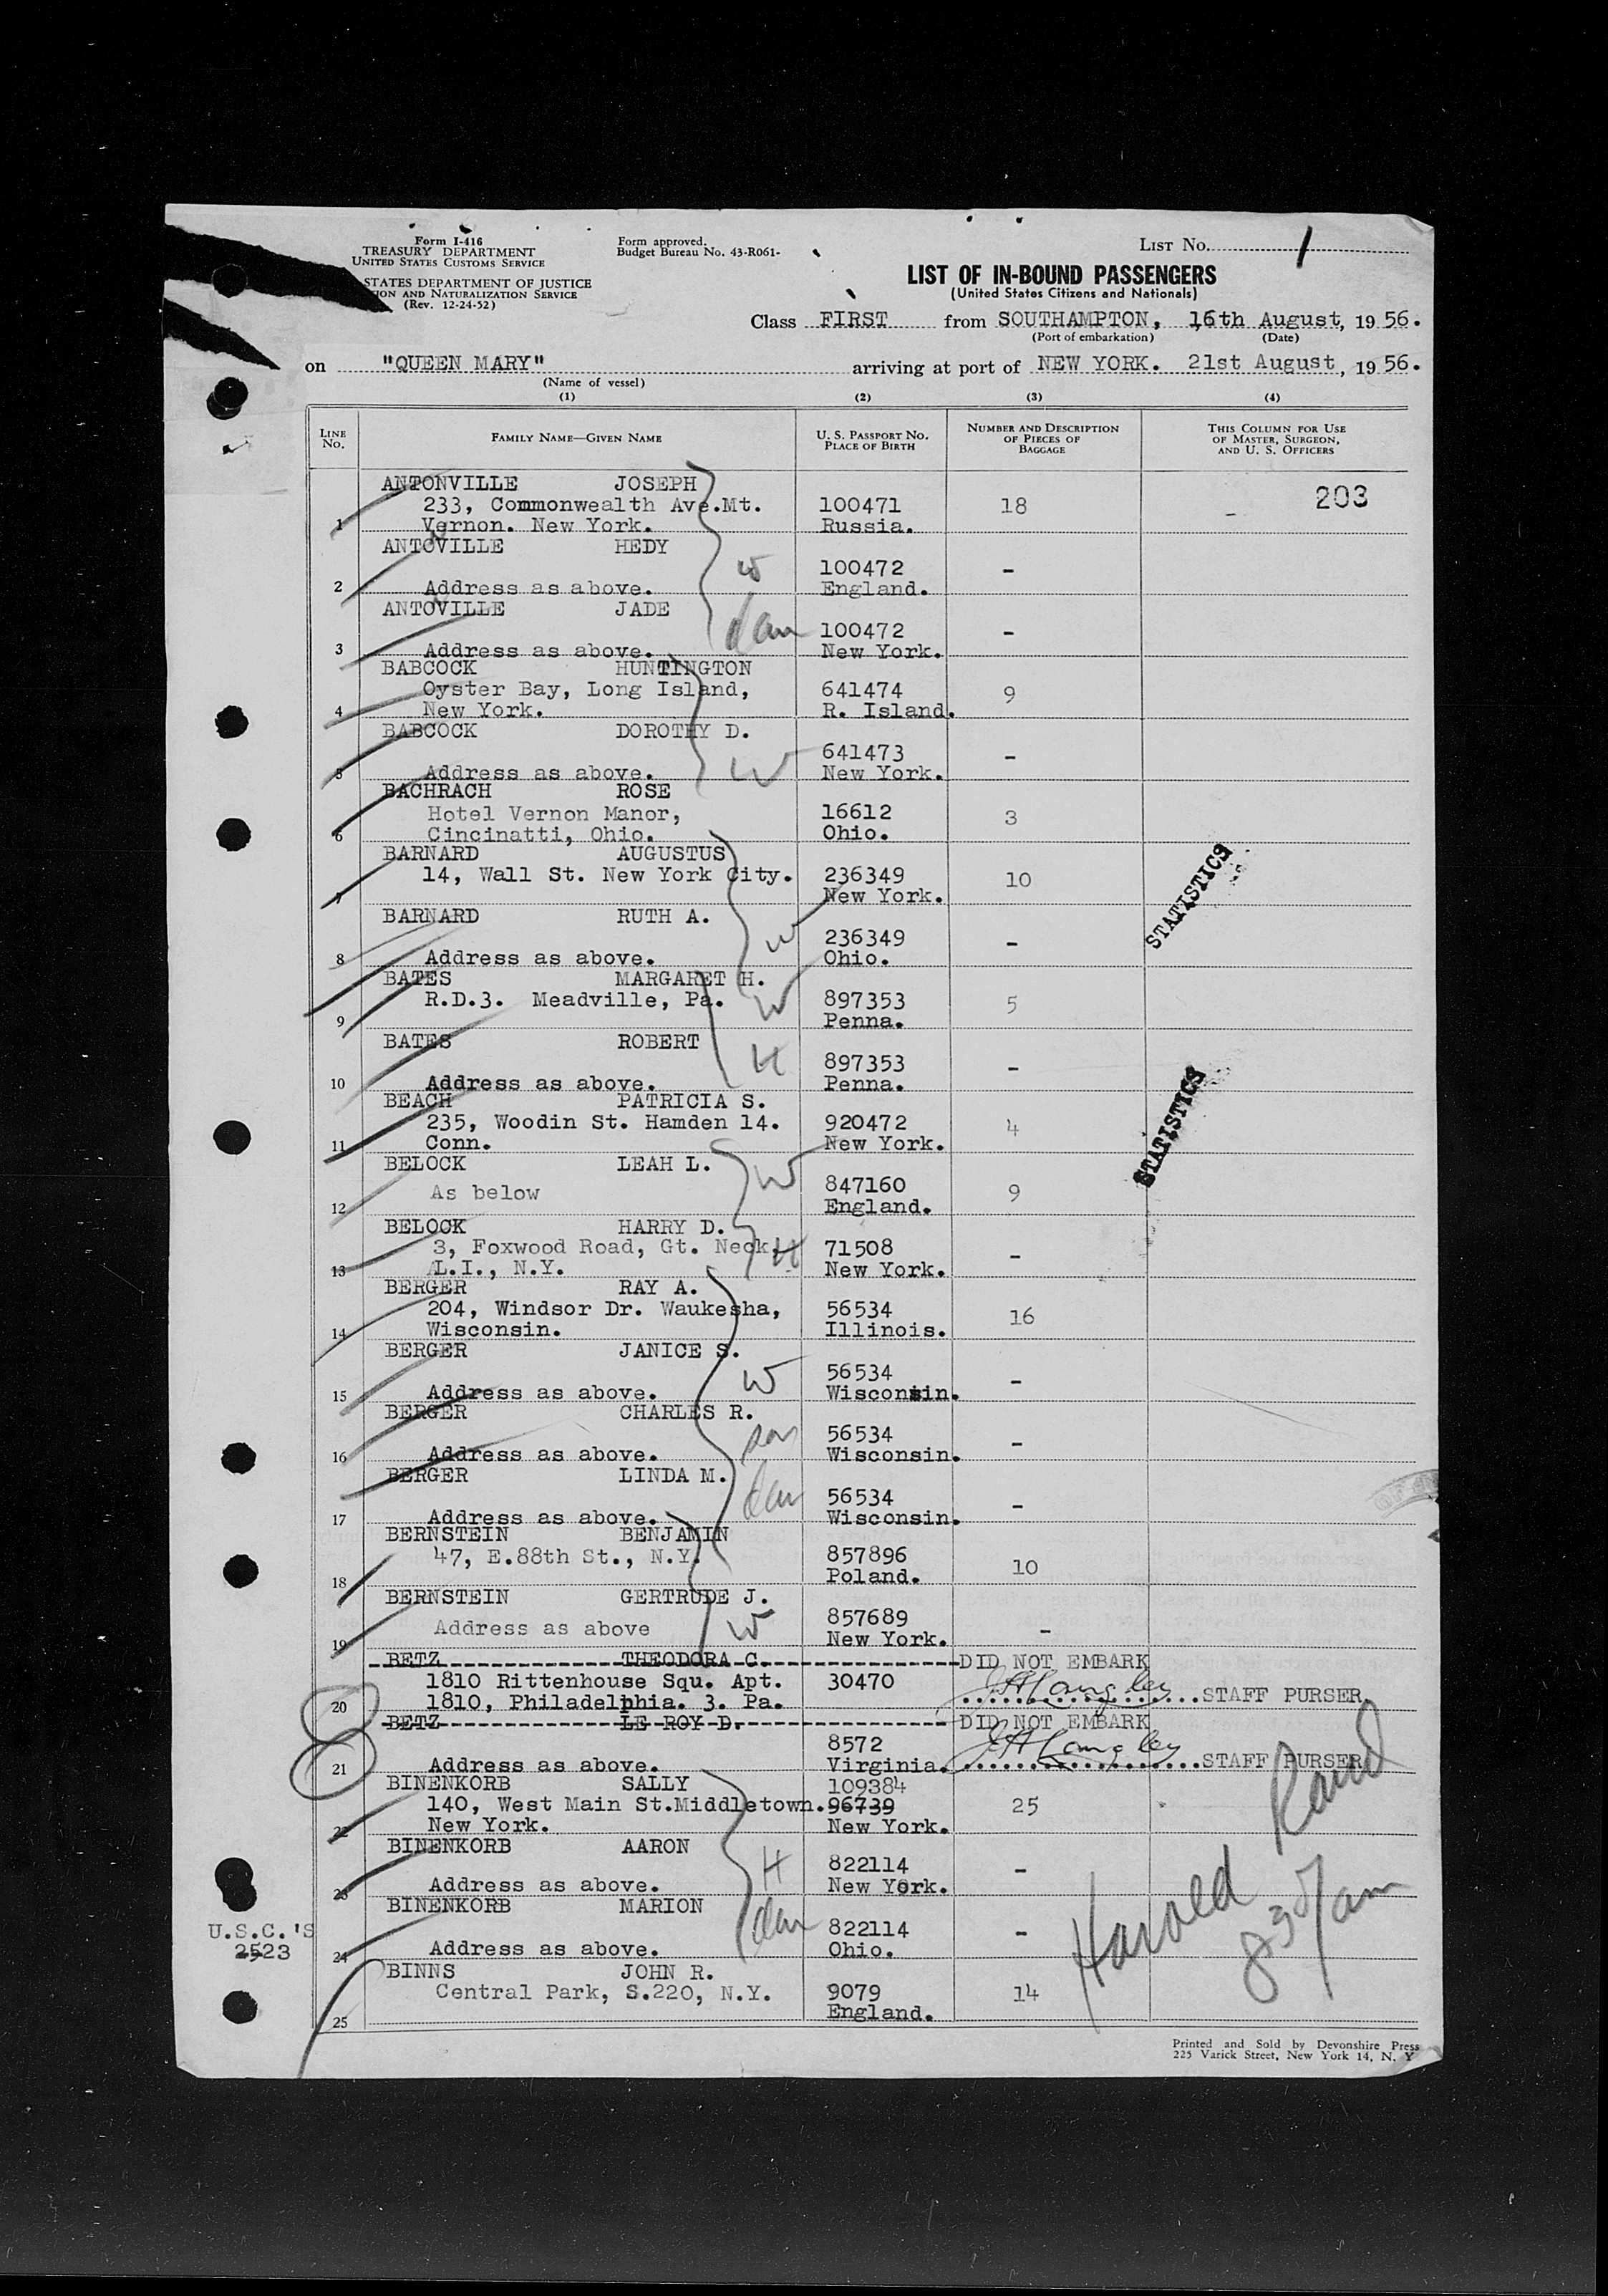 Form I-416
TREASURY DEPARTMENT
UNITED STATES CUSTOMS SERVICE
STATES DEPARTMENT OF JUSTICE
ION AND NATURALIZATION SERVICE
(Rev. 12-24-52)
Form approved.
Budget Bureau No. 43-R061-
LIST NO. 1
LIST OF IN-BOUND PASSENGERS
(United States Citizens and Nationals)
Class FIRST from SOUTHAMPTON, 16th August, 19 56.
(Port of embarkation) (Date)
on "QUEEN MARY" arriving at port of NEW YORK. 21st August, 19 56.
(Name of vessel)
(1) (2) (3) (4)
LINE NO. FAMILY NAME—GIVEN NAME U. S. PASSPORT NO. PLACE OF BIRTH NUMBER AND DESCRIPTION OF PIECES OF BAGGAGE THIS COLUMN FOR USE OF MASTER, SURGEON, AND U. S. OFFICERS
ANTONVILLE JOSEPH
233, Commonwealth Ave.Mt. 100471 18 203
1 Vernon. New York. Russia.
ANTOVILLE HEDY
W 100472 -
2 Address as above. England.
ANTOVILLE JADE
dau 100472 -
3 Address as above. New York.
BABCOCK HUNTINGTON
Oyster Bay, Long Island, 641474 9
4 New York. R. Island.
BABCOCK DOROTHY D.
W 641473 -
5 Address as above. New York.
BACHRACH ROSE
Hotel Vernon Manor, 16612 3
6 Cincinatti, Ohio. Ohio.
BARNARD AUGUSTUS
14, Wall St. New York City. 236349 10
7 New York.
BARNARD RUTH A.
W 236349 -
8 Address as above. Ohio.
STATISTICS
BATES MARGARET H.
R.D.3. Meadville, Pa. W 897353 5
9 Penna.
BATES ROBERT
H 897353 -
10 Address as above. Penna.
BEACH PATRICIA S.
235, Woodin St. Hamden 14. 920472 4
11 Conn. New York.
STATISTICS
BELOCK LEAH L.
As below W 847160 9
12 England.
BELOCK HARRY D.
3, Foxwood Road, Gt. Neck, H 71508 -
13 L.I., N.Y. New York.
BERGER RAY A.
204, Windsor Dr. Waukesha, 56534 16
14 Wisconsin. Illinois.
BERGER JANICE S.
W 56534 -
15 Address as above. Wisconsin.
BERGER CHARLES R.
son 56534 -
16 Address as above. Wisconsin.
BERGER LINDA M.
dau 56534 -
17 Address as above. Wisconsin.
BERNSTEIN BENJAMIN
47, E.88th St., N.Y. 857896 10
18 Poland.
BERNSTEIN GERTRUDE J.
Address as above W 857689 -
19 New York.
BETZ THEODORA C. DID NOT EMBARK
1810 Rittenhouse Squ. Apt. 30470
20 1810, Philadelphia. 3. Pa. STAFF PURSER
BETZ LE ROY D. DID NOT EMBARK
8572
21 Address as above. Virginia. STAFF PURSER
BINENKORB SALLY 109384
140, West Main St.Middletown. 96739 25
22 New York. New York.
BINENKORB AARON
H 822114 -
23 Address as above. New York.
BINENKORB MARION
dau 822114 -
24 Address as above. Ohio.
U.S.C.'S
2523
BINNS JOHN R.
Central Park, S.220, N.Y. 9079 14
25 England.
Harold Rand
830/am
Printed and Sold by Devonshire Press
225 Varick Street, New York 14, N. Y